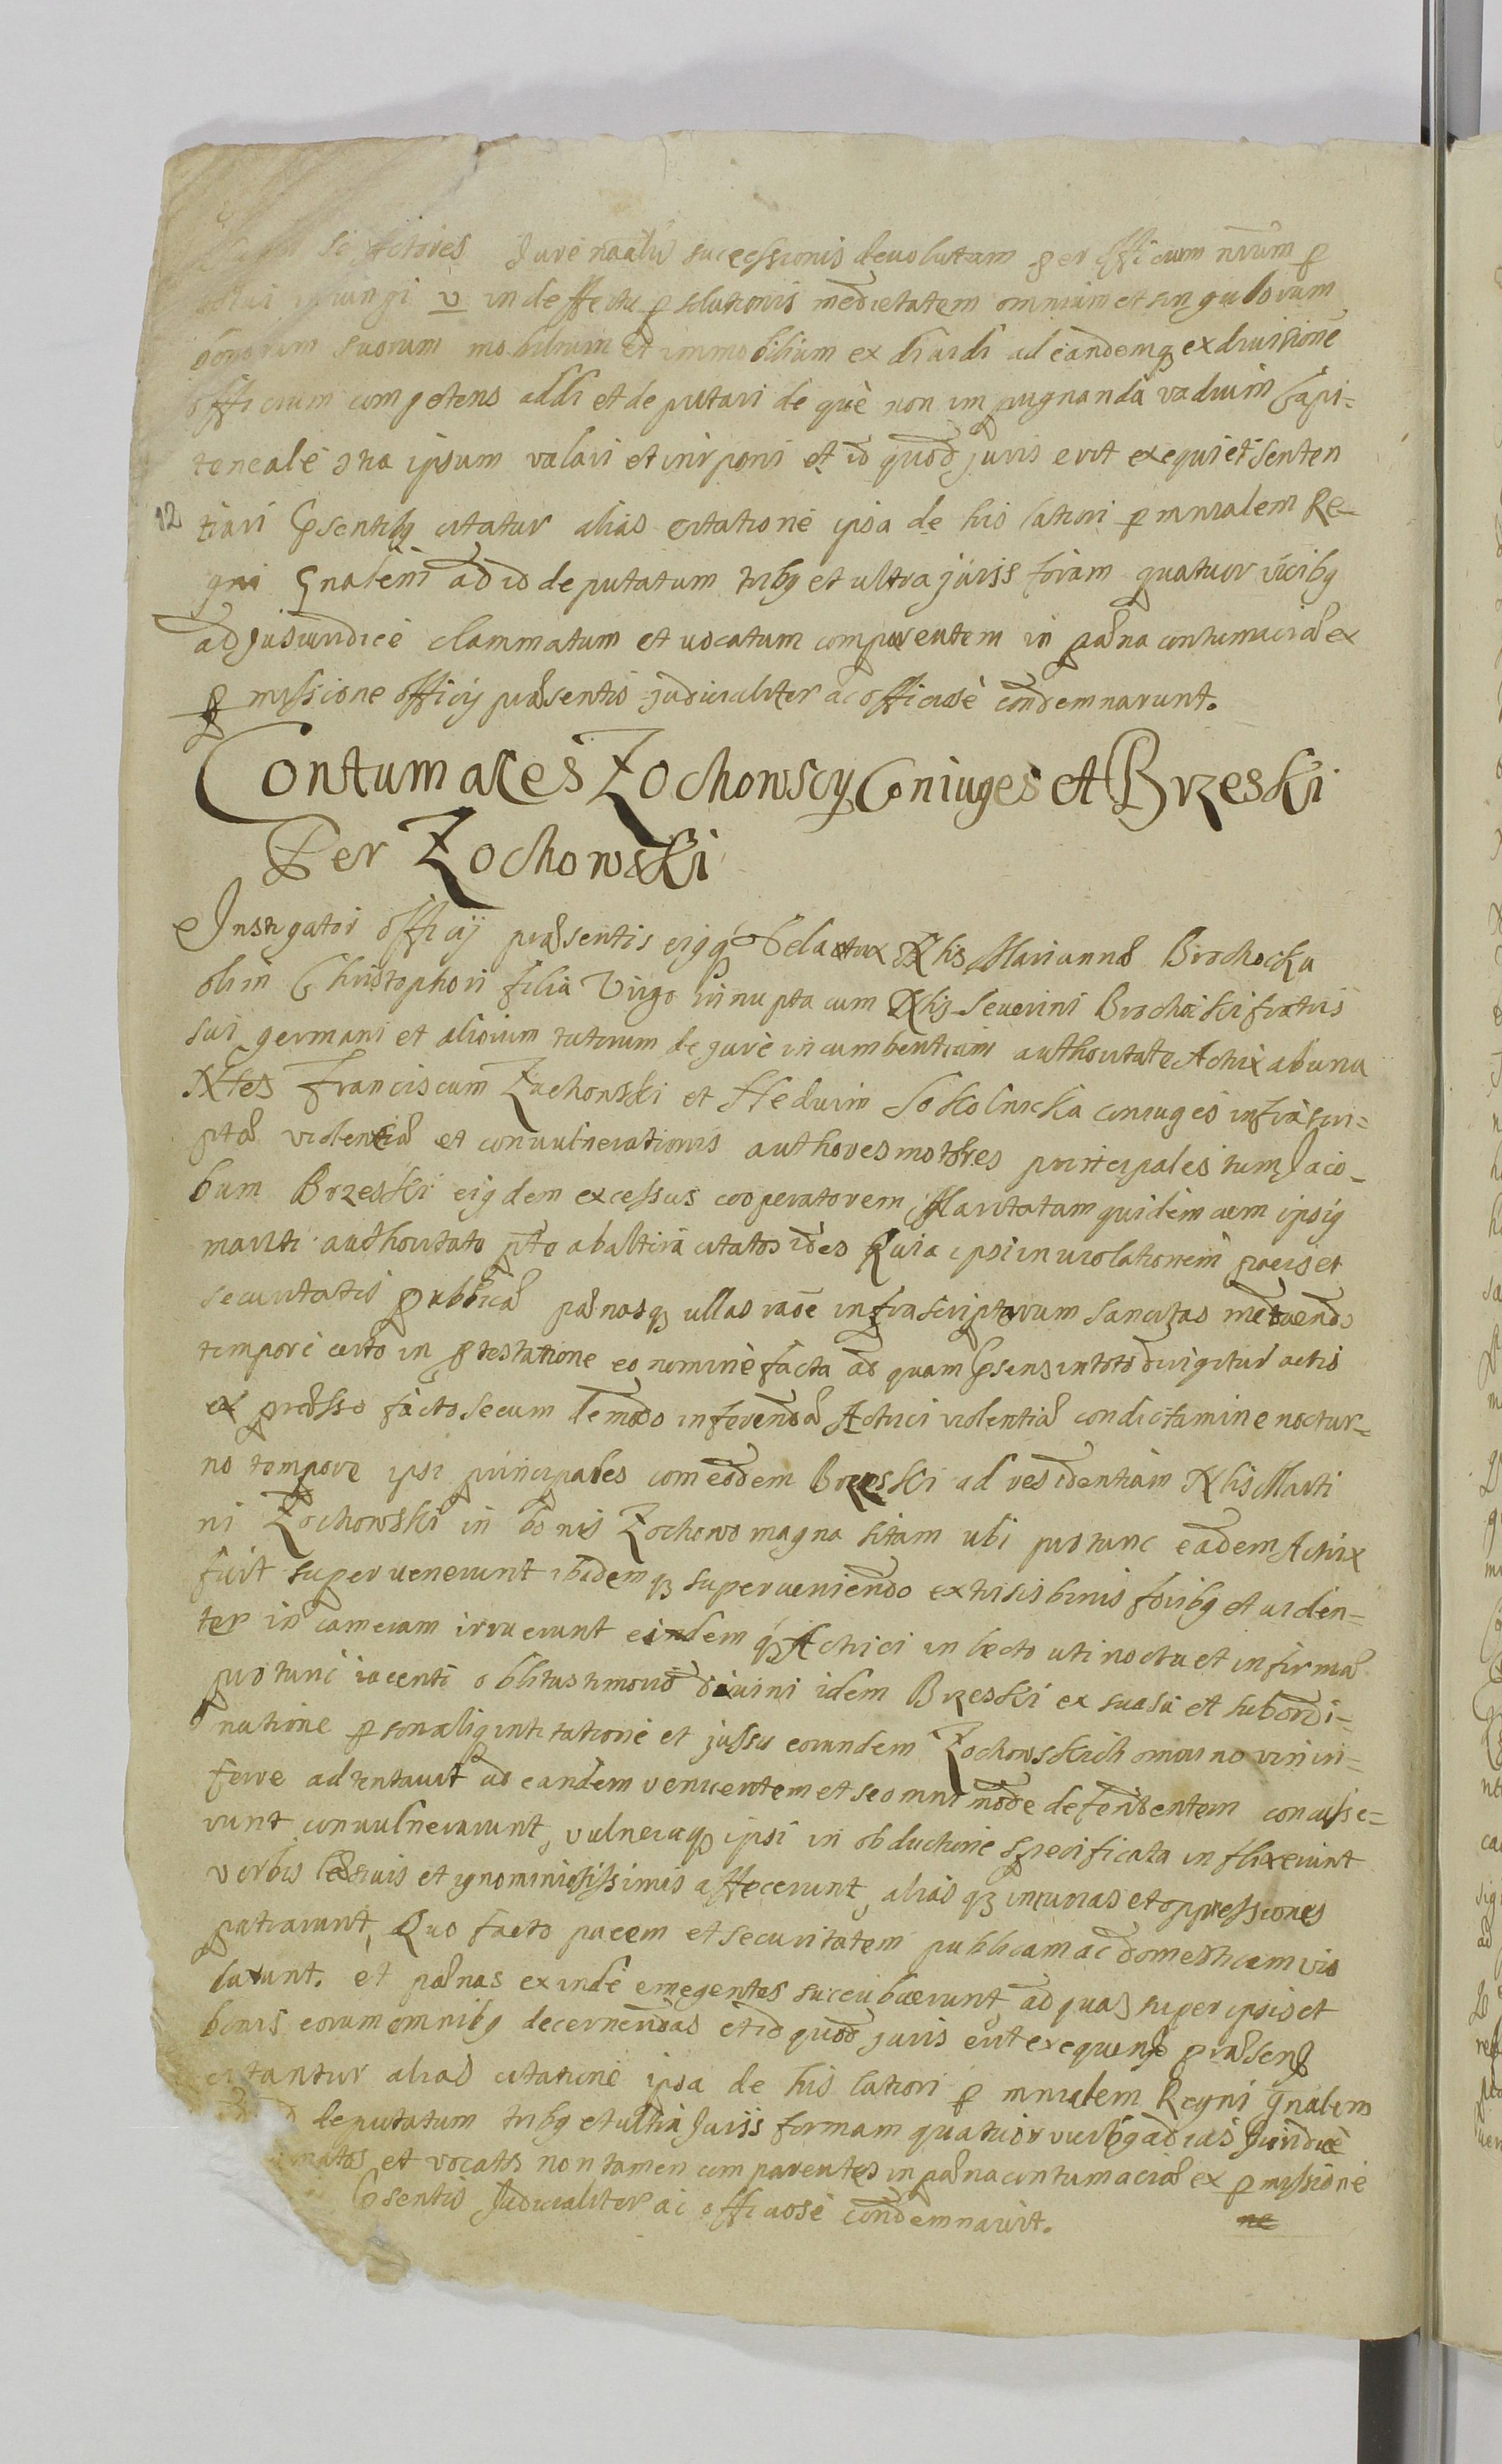 se Actores Jure naali sucecssionis devolutam per officium nrum p
iniungi v in deffectu psolutionis medietatem omnium et singulorum
bonorum suorum mobilium et immobilium ex dividi ad eandemq ex divisione
officium competens addi et deputari de què non impugnanda vadium Capi-
toneale ipsum valari et inrponi et id quod juris erit exequi et senten
12 tiari Psentibq citatur alias citatione ipsa de his latiori p mnralem Re-
gni Gnalem ad id deputatum tribq et ultra juriss foram quatuor vicibq
ad jusiuridice clammatum et vocatum comparentem in pæna contumaciæ ex
pmissione officij præsentis judicialiter ac officiosè condemnarunt.
Contumaces Zochowscy Coniuges et Brzeski
Per Zochowski
Instigator officij præsentis eiqq delatrix Nlis Marianna Brochocka
olim Christophori filia Virgo innupta cum Nlis Severini Brochocki fratris
sui germani et aliorum tutorum de jure incumbentium authoritate Actrix ab una
Nles Franciscum Zochowski et Heduim Sokolnicka coniuges infrascri-
ptæ violentiæ et convulnerationis authores motores principales tum Jaco-
bum Brzeski eiqdem excessus cooperatorem Maritatam quidem cum ipsiq
mariti authoritate pte ab altera citatos ideo Quia ipsi in violationem pacis et
securitatis publicæ pænasq ullas raoe infrascriptorum sancitas metuendo
tempore certo in ptestatione eo nominè facta ad quam Psens in toto dirigitur actis
expresso facto secum de modo inferendæ Actrici violentiæ condictamine noctur-
no tempore ipsi principales com eodem Brzeski ad residentiam Nlis Marti
ni Zochowski in bonis Zochowo magna sitam ubi pro tunc eadem Actrix
fuit supervenerunt ibidemq superveniendo extrisis binis foribq et violen-
ter in cameram irruerunt eindem q Actrici in lecto uti noctu et infirmæ
pro tunc iacenti oblitus timoris divini idem Brzeski ex suasu et subordi-
natione psonaliq intitatione et jussu eorundem Zochowskich omni no vim in-
ferre adtentavit ad eandem venientem et se omni mode defendentem concusse-
runt convulnerarunt, vulneraq ipsi in obductione specificata inflixerunt
verbis læsivis et ignominiosissimis affecerunt, aliasq iniurias et oppressiones
patrarunt, Quo facto pacem et securitatem publicam ac domesticam vio
larunt. et pænas exinde emegentes succubuerunt ad quas super ipsis et
bonis eorum omnibq decernendas et id quod juris erit exequend præsend
citantur alias citatione ipsa de his latiori p mnralem Regni Gnalem
deputatum tribq et ultra Juriss formam quatuor vicibq ad ius Juridicè
matos et vocatos non tamen comparentes in pæna contumaciæ ex pmissione
Psentis Judicialiter ac officiosè condemnavit.